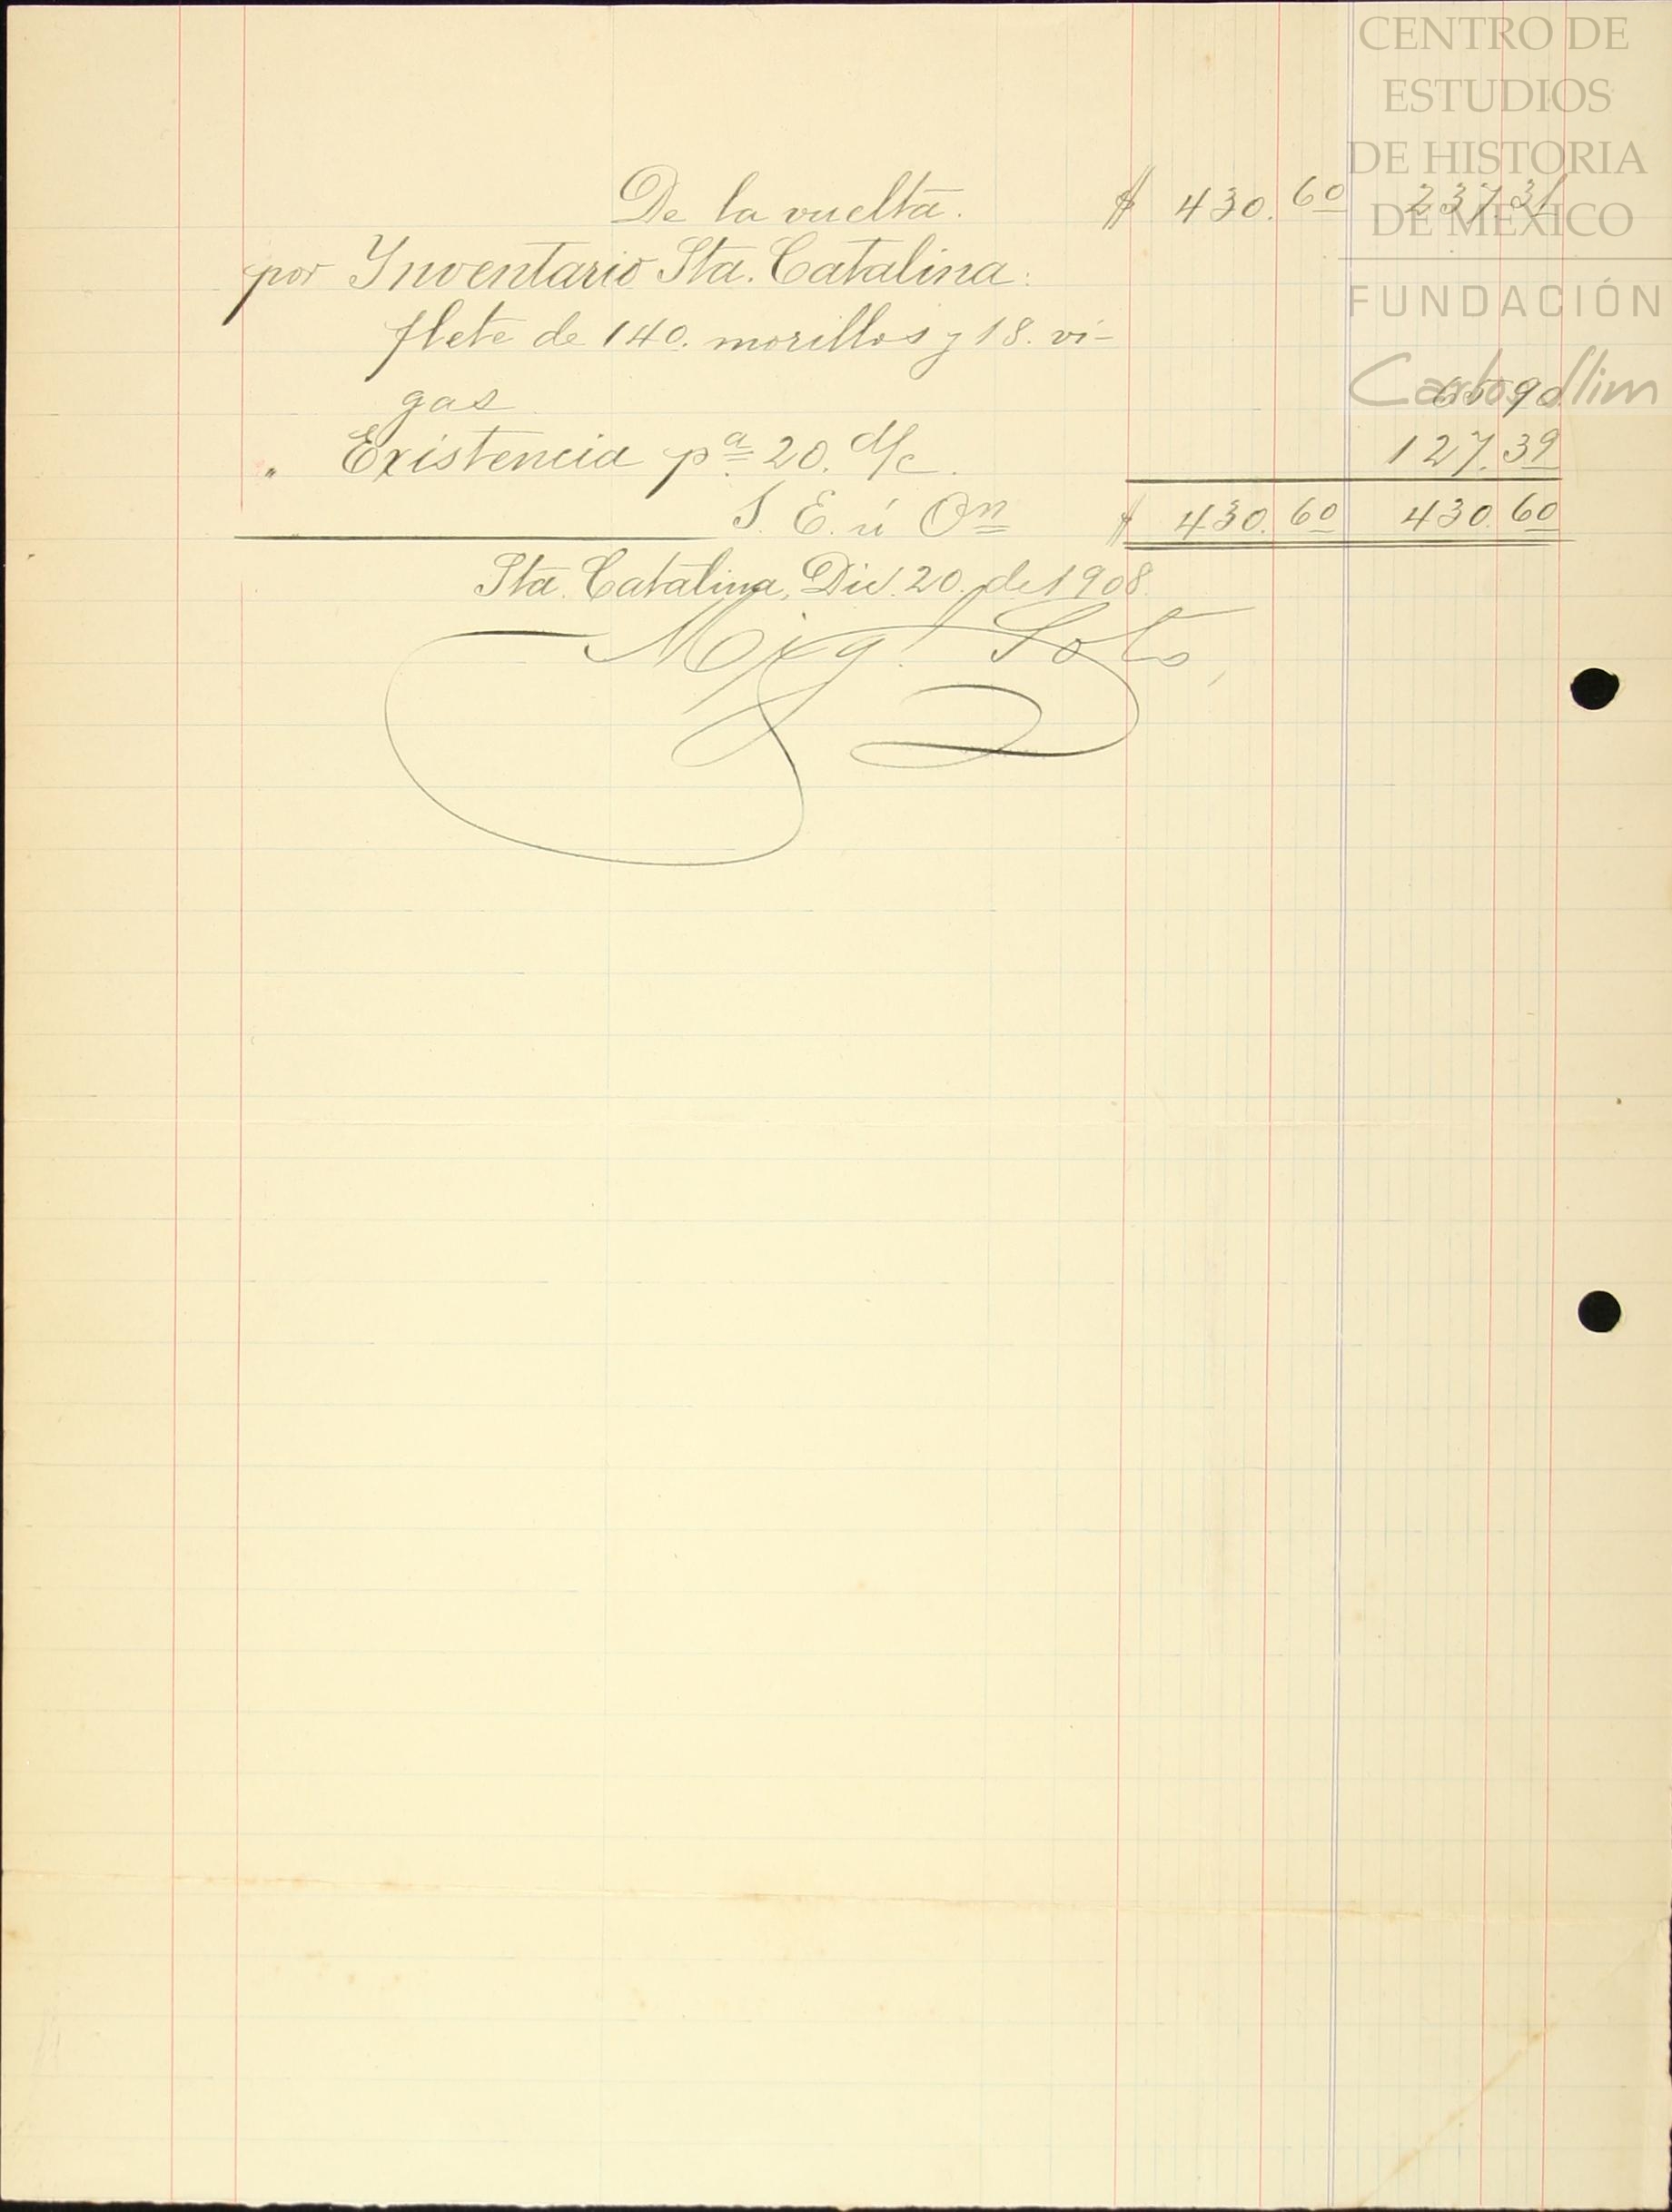 CENTRO DE
ESTUDIOS
DE HISTORIA
DE MEXICO
FUNDACIÓN
Carlos Slim
De la vuelta. $ 430.60 237.31
por Ynventario Sta. Catalina:
flete de 140. morillos y 18. vi-
gas 65 90
" Existencia pª 20. d/c. 127.39
S. E. ú On $ 430.60 430.60
Sta. Catalina, Dic. 20. de 1908.
Mig! Soto,